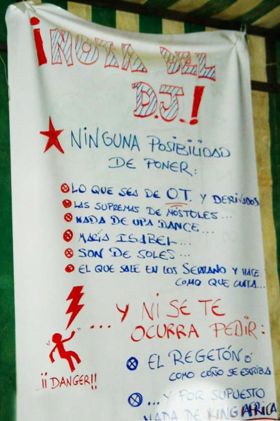 ¡NOTA DEL
D.J.!
NINGUNA POSIBILIDAD
DE PONER:
LO QUE SEA DE OT. Y DERIVADOS
LAS SUPREMAS DE MÓSTOLES...
NADA DE UPA DANCE...
MARÍA ISABEL...
SON DE SOLES...
EL QUE SALE EN LOS SERRANO Y HACE
COMO QUE CANTA...
...Y NI SE TE
OCURRA PEDIR:
EL REGETÓN Ó
COMO COÑO SE ESCRIBA
...Y POR SUPUESTO
NADA DE KING AFRICA
¡¡DANGER!!